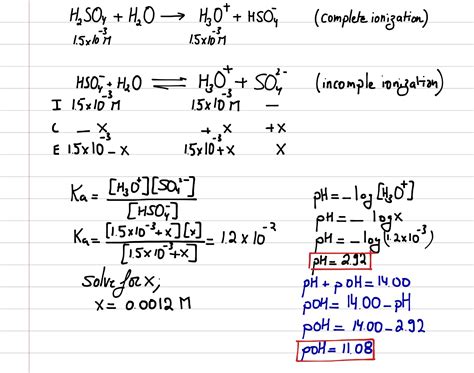 H₂SO₄ + H₂O ⟶ H₃O⁺ + HSO₄⁻ (complete ionization)
1.5x10⁻³ M 1.5x10⁻³ M
HSO₄⁻ + H₂O ⇌ H₃O⁺ + SO₄²⁻ (incomple ionization)
I 1.5x10⁻³ M 1.5x10⁻³ M —
C – x + x + x
E 1.5x10⁻³ – x 1.5x10⁻³ + x x
Ka = [H₃O⁺][SO₄²⁻] / [HSO₄⁻]
Ka = [1.5x10⁻³ + x][x] / [1.5x10⁻³ + x] = 1.2 x 10⁻²
Solve for x;
x = 0.0012 M
pH = – log [H₃O⁺]
pH = – log x
pH = – log (1.2x10⁻³)
pH = 2.92
pH + pOH = 14.00
pOH = 14.00 – pH
pOH = 14.00 – 2.92
pOH = 11.08